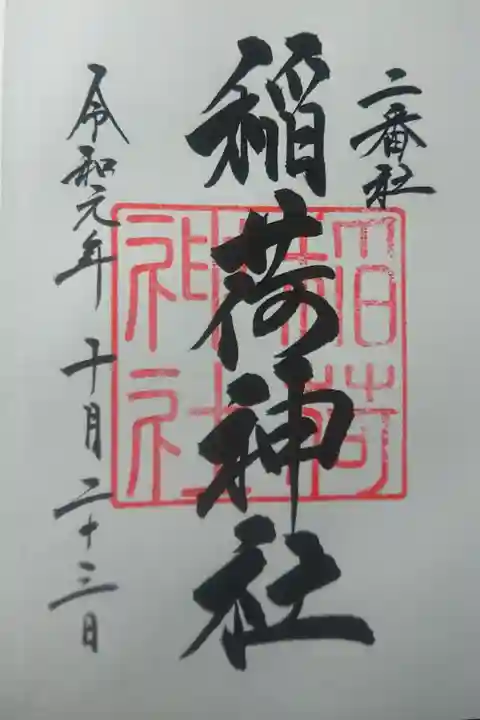 二番社
稲荷神社
稲荷
神社
令和元年十月二十三日